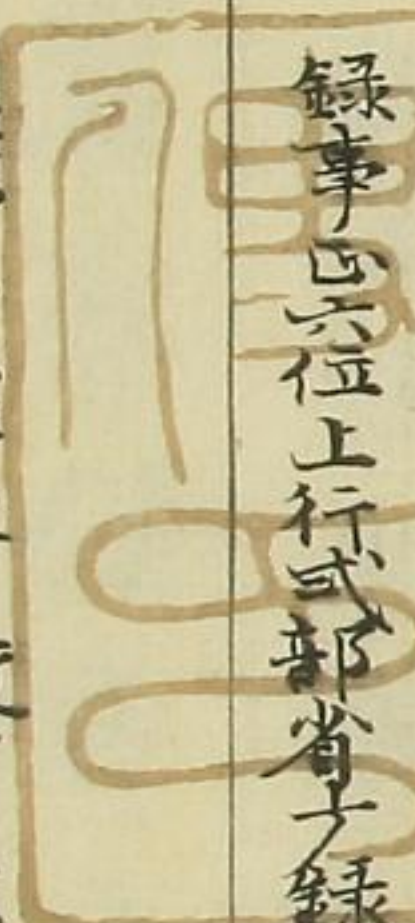 録事正六位上行式部省少録